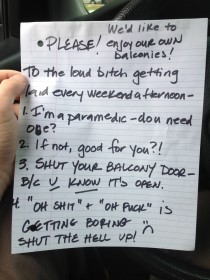 We'd like to
• PLEASE! enjoy our own
balconies!
To the loud bitch getting
laid every weekend afternoon-
1. I'm a paramedic - do u need
one?
2. If not, good for you?!
3. SHUT YOUR BALCONY DOOR-
B/C U KNOW IT'S OPEN.
4. "OH SHIT" + "OH FUCK" is
GETTING BORING
SHUT THE HELL UP!